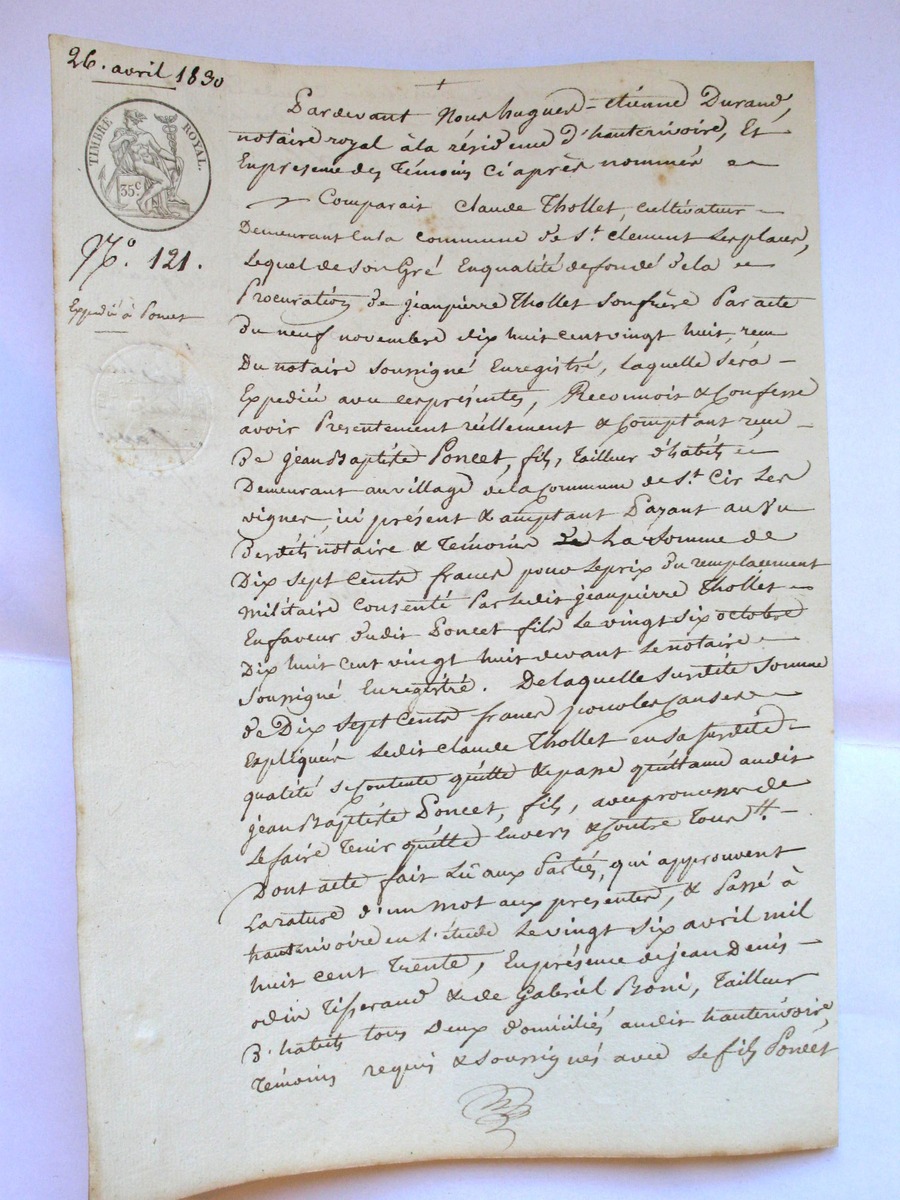 26. avril 1830
TIMBRE ROYAL.
35.c
N.o 121.
Expedié à Poncet
Pardevant Nous hugues-etienne Durand,
notaire royal à la résidence d'hauterivoire, Et
En presence des Témoins Ci après nommés
Comparait Claude Thollet, cultivateur
Demeurant en la commune de St. Clement Lesplaces,
Lequel de son Gré En qualité de fondé de la
Procuration de jeanpierre Thollet son frère Par acte
du neuf novembre dix huit cent vingt huit, recu
Du notaire soussigné Enregistré, laquelle Sera
Expediée avec ces présentes, Reconnoit & Confesse
avoir Presentement réellement & Comptant recu
de jean Baptiste Poncet, fils, Tailleur d'habits
Demeurant au village de la Commune de St. Cir Les
vignes, ici présent & acceptant Payant au Vu
desdits notaire & Temoins La Somme de
Dix sept Cents francs pour le prix du remplacement
militaire Consenté Par ledit jeanpierre Thollet
En faveur dudit Poncet fils Le vingt six octobre
Dix huit cent vingt huit devant Le notaire
Soussigné Enregistré. De laquelle susdite Somme
de Dix sept Cents francs pour les Causes
Expliquées Ledit Claude Thollet en sa susdite
qualité se Contente quitte & passe quittance audit
jean Baptiste Poncet, fils, avec promesse de
Le faire Tenir quitte Envers & Contre Tous
Dont acte fait Lû aux Parties, qui approuvent
La rature d'un mot aux presentes, & Passé à
hauterivoire en l'étude Le vingt six avril mil
huit cent Trente, En présence de jean Denis
odin Tisserand & de Gabriel Boni, Tailleur
d'habits tous Deux domiciliés audit hauterivoire,
Témoins requis & Soussignés avec Le fils Poncet